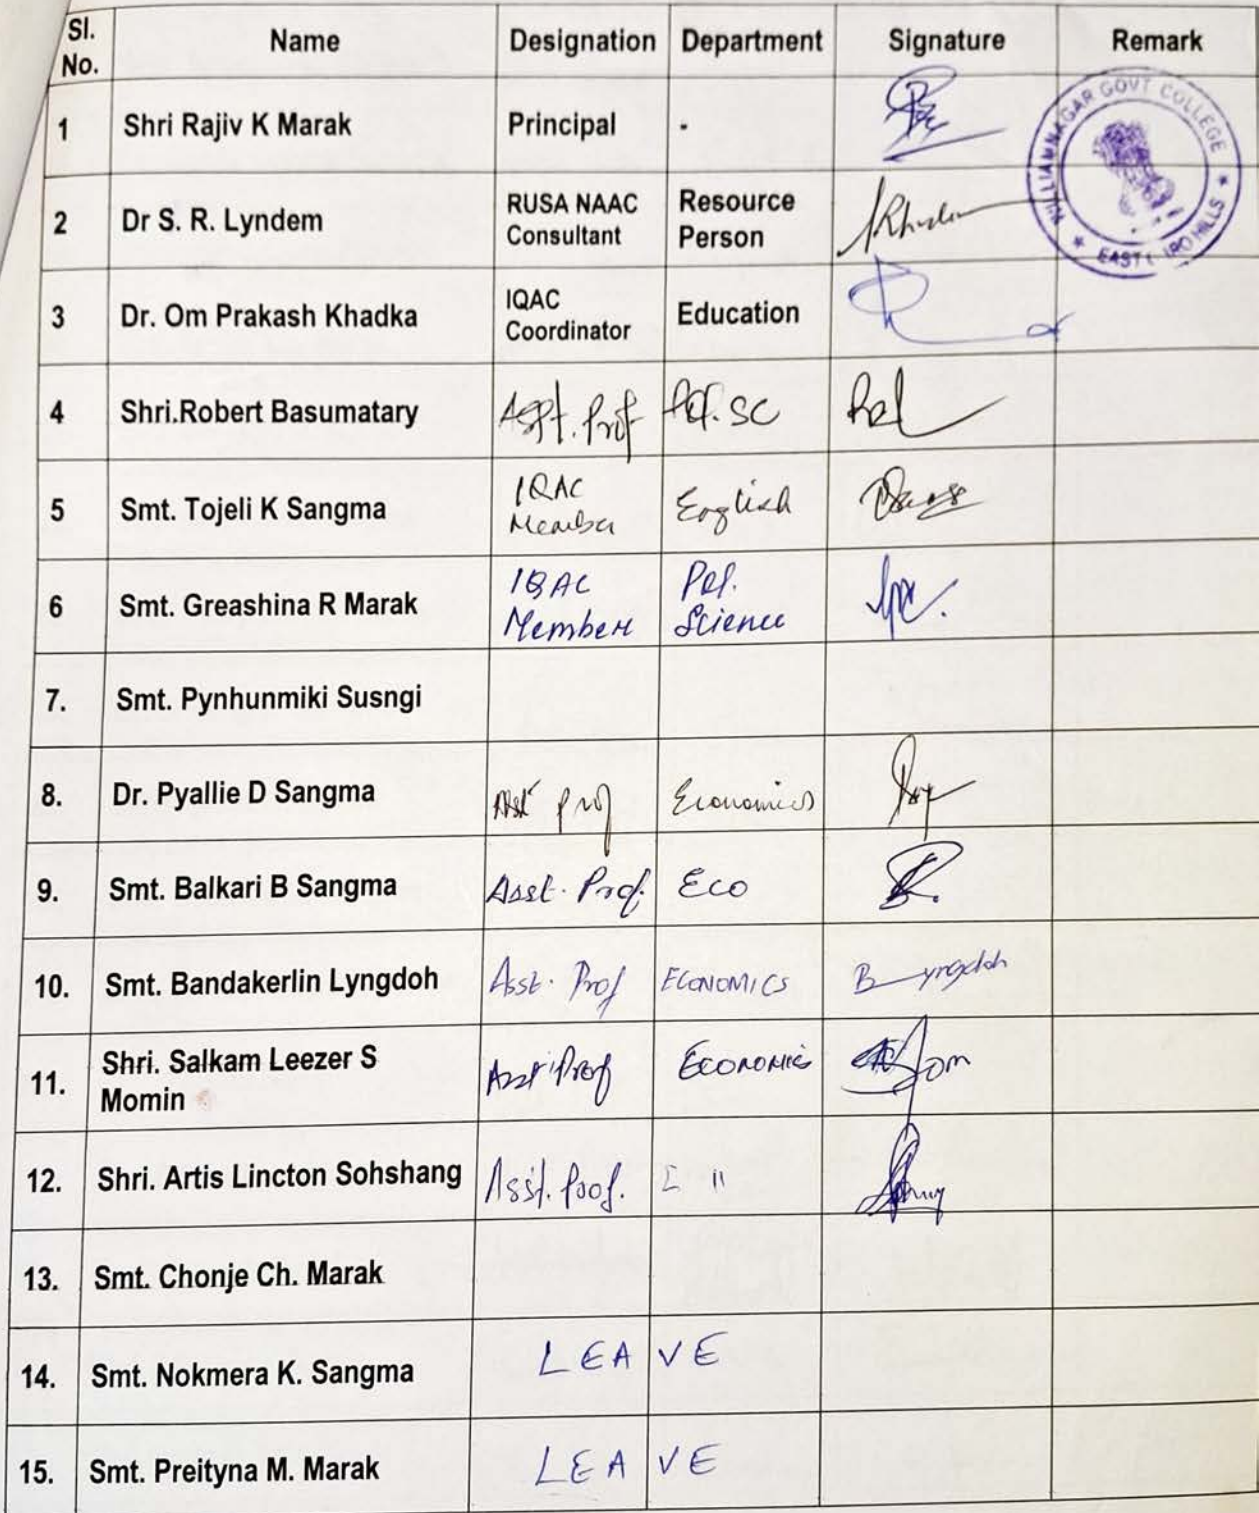 Sl. No. Name Designation Department Signature Remark
1 Shri Rajiv K Marak Principal -
WILLIAMNAGAR GOVT COLLEGE
★ EAST HILLS ★
2 Dr S. R. Lyndem RUSA NAAC Consultant Resource Person
3 Dr. Om Prakash Khadka IQAC Coordinator Education
4 Shri.Robert Basumatary Asst. Prof Pol. SC
5 Smt. Tojeli K Sangma IQAC Member English
6 Smt. Greashina R Marak IQAC Member Pol. Science
7. Smt. Pynhunmiki Susngi
8. Dr. Pyallie D Sangma Asst Prof Economics
9. Smt. Balkari B Sangma Asst. Prof. Eco
10. Smt. Bandakerlin Lyngdoh Asst. Prof ECONOMICS B Lyngdoh
11. Shri. Salkam Leezer S Momin Asst Prof ECONOMICS
12. Shri. Artis Lincton Sohshang Asst. Prof. "
13. Smt. Chonje Ch. Marak
14. Smt. Nokmera K. Sangma LEAVE
15. Smt. Preityna M. Marak LEAVE